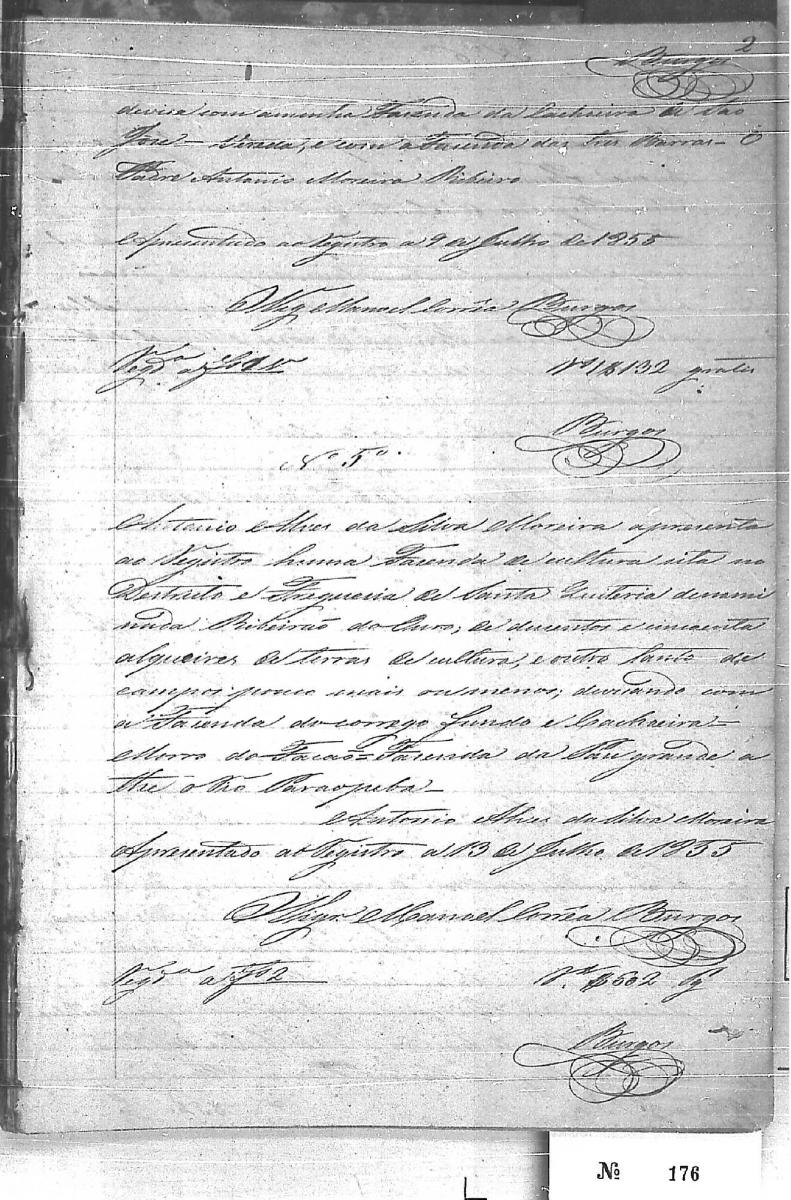 2
Burgos
devisa com a minha Fazenda da Cachoeira de São
José – Vereda, e com a Fazenda das tres Barras – O
Padre Antonio Moreira Ribeiro
Apresentado ao Registro a 9 de Julho de 1855
O Vigr.º Manoel Corrêa Burgos
Reg.da a f 1 v
Rs 1$132 gratis
Burgos
N.º 5º.
Antonio Alves da Silva Moreira apresenta
ao Registro huma Fazenda de cultura sita no
Destrito e Freguesia de Santa Quiteria denomi
nada Ribeirão do Ouro, de duzentos e cincoenta
alqueires de terras de cultura, e outro tanto de
campos pouco mais ou menos; devisando com
a Fazenda do corrego fundo e Cachoeira –
Morro do Facão = Fazenda da Páu grande a
the o Rio Paraopeba –
Antonio Alves da Silva Moreira
Apresentado ao Registro a 13 de Julho de 1855
O Vigr.º Manoel Corrêa Burgos
Reg.da a f 2
Rs. $602 Pg
Burgos
Nº 176